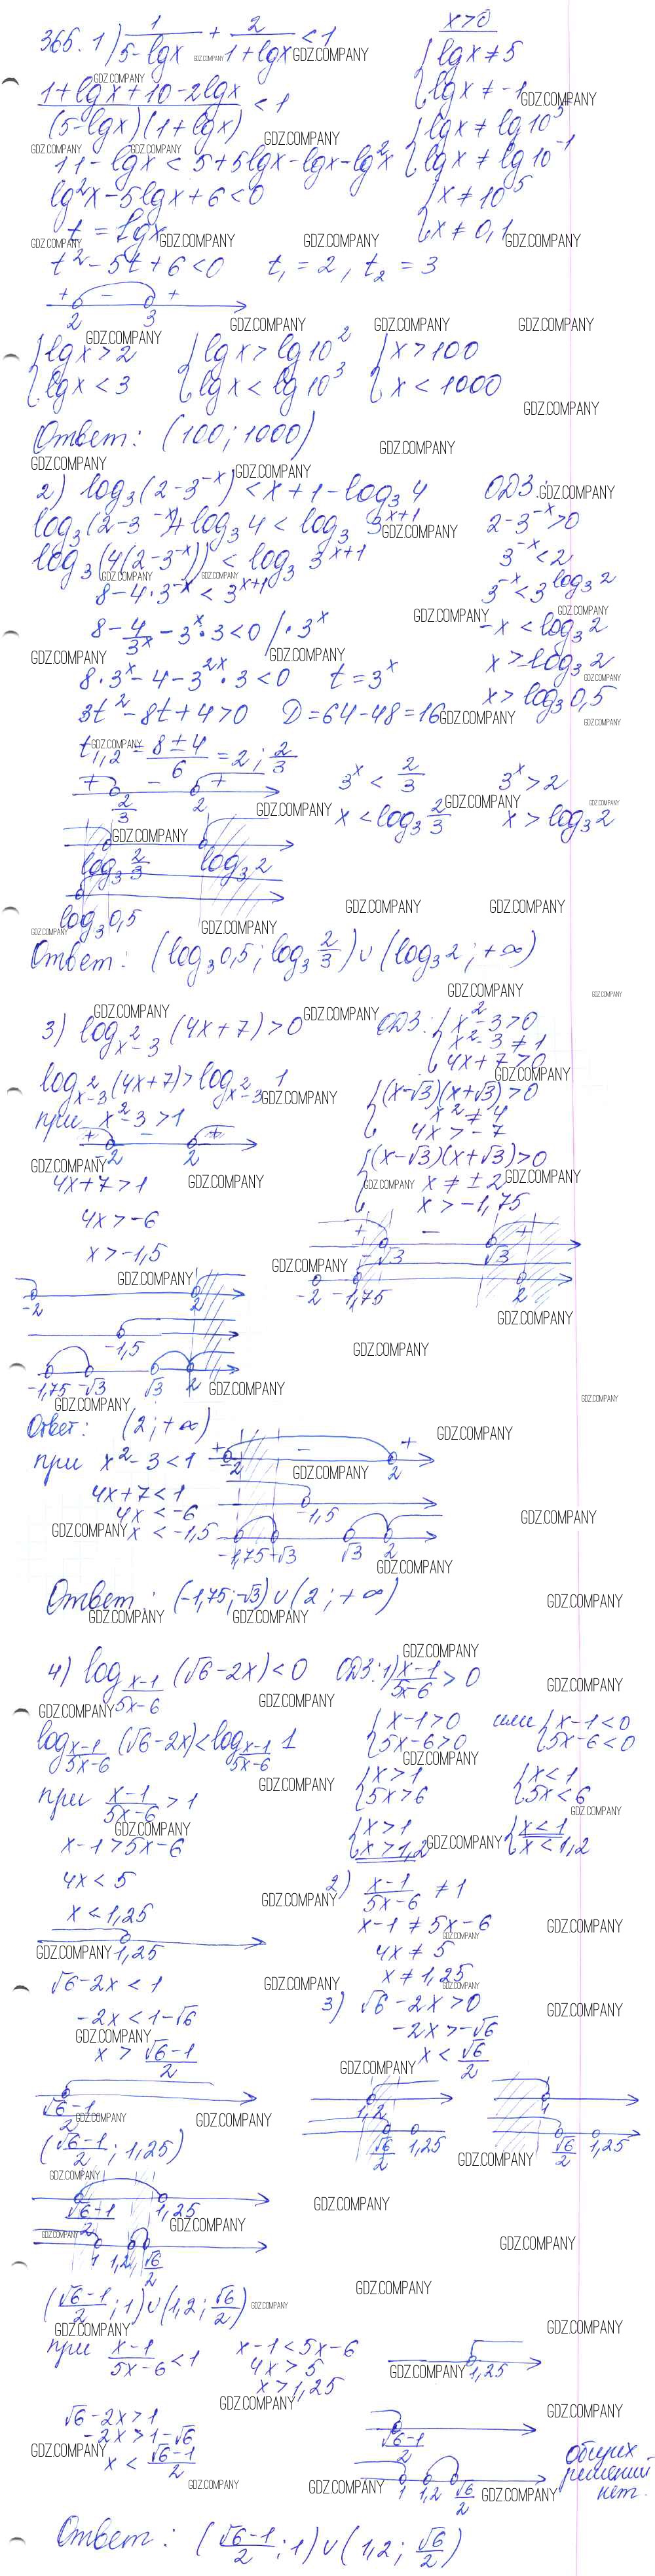 365. 1) 1/(5-lgx) + 2/(1+lgx) < 1
x>0
{ lgx ≠ 5
{ lgx ≠ -1
(1+lgx+10-2lgx)/((5-lgx)(1+lgx)) < 1
{ lgx ≠ lg10^5
{ lgx ≠ lg10^-1
11-lgx < 5+5lgx-lgx-lg²x
lg²x-5lgx+6<0
{ x ≠ 10^5
{ x ≠ 0,1
t = lgx
t²-5t+6<0 t₁=2, t₂=3
+ - +
2 3
{ lgx>2 { lgx>lg10² { x>100
{ lgx<3 { lgx<lg10³ { x<1000
Ответ: (100; 1000)
2) log₃(2-3^-x) < x+1-log₃4 ОДЗ:
log₃(2-3^-x)+log₃4 < log₃3^x+1 2-3^-x>0
log₃(4(2-3^-x)) < log₃3^x+1 3^-x<2
8-4·3^-x < 3^x+1 3^-x<3^log₃2
8-4/3^x-3^x·3<0 /·3^x -x<log₃2
8·3^x-4-3^2x·3<0 t=3^x x>-log₃2
x>log₃0,5
3t²-8t+4>0 D=64-48=16
t₁,₂=(8±4)/6=2; 2/3
3^x<2/3 3^x>2
+ - +
2/3 2
x<log₃2/3 x>log₃2
log₃2/3 log₃2
log₃0,5
Ответ: (log₃0,5; log₃2/3)∪(log₃2; +∞)
3) log x²-3 (4x+7)>0 ОДЗ: { x²-3>0
{ x²-3≠1
{ 4x+7>0
log x²-3 (4x+7)>log x²-3 1
{ (x-√3)(x+√3)>0
{ x²≠4
{ 4x>-7
при x²-3>1
+ - +
-2 2
{ (x-√3)(x+√3)>0
{ x≠±2
{ x>-1,75
4x+7>1
4x>-6
x>-1,5
+ - +
-√3 √3
-2 -1,75 2
-2 2
-1,5
-1,75 -√3 √3 2
Ответ: (2; +∞)
при x²-3<1
+ - +
-2 2
4x+7<1
4x<-6
x<-1,5
-1,5
-1,75 -√3 √3 2
Ответ: (-1,75; -√3)∪(2; +∞)
4) log (x-1)/(5x-6) (√6-2x)<0 ОДЗ: 1) (x-1)/(5x-6)>0
log (x-1)/(5x-6) (√6-2x)<log (x-1)/(5x-6) 1
{ x-1>0 или { x-1<0
{ 5x-6>0 { 5x-6<0
{ x>1 { x<1
{ 5x>6 { 5x<6
при (x-1)/(5x-6)>1
{ x>1 { x<1
{ x>1,2 { x<1,2
x-1>5x-6
4x<5
x<1,25
2) (x-1)/(5x-6) ≠ 1
x-1≠5x-6
4x≠5
x≠1,25
1,25
√6-2x<1
-2x<1-√6
x>(√6-1)/2
3) √6-2x>0
-2x>-√6
x<√6/2
(√6-1)/2
1,2 1
√6/2 1,25 √6/2 1,25
((√6-1)/2; 1,25)
(√6-1)/2 1,25
1 1,2 √6/2
((√6-1)/2; 1)∪(1,2; √6/2)
при (x-1)/(5x-6)<1 x-1<5x-6
4x>5
x>1,25
1,25
√6-2x>1
-2x>1-√6
x<(√6-1)/2
(√6-1)/2
1 1,2 √6/2
общих
решений
нет.
Ответ: ((√6-1)/2; 1)∪(1,2; √6/2)
GDZ.COMPANY